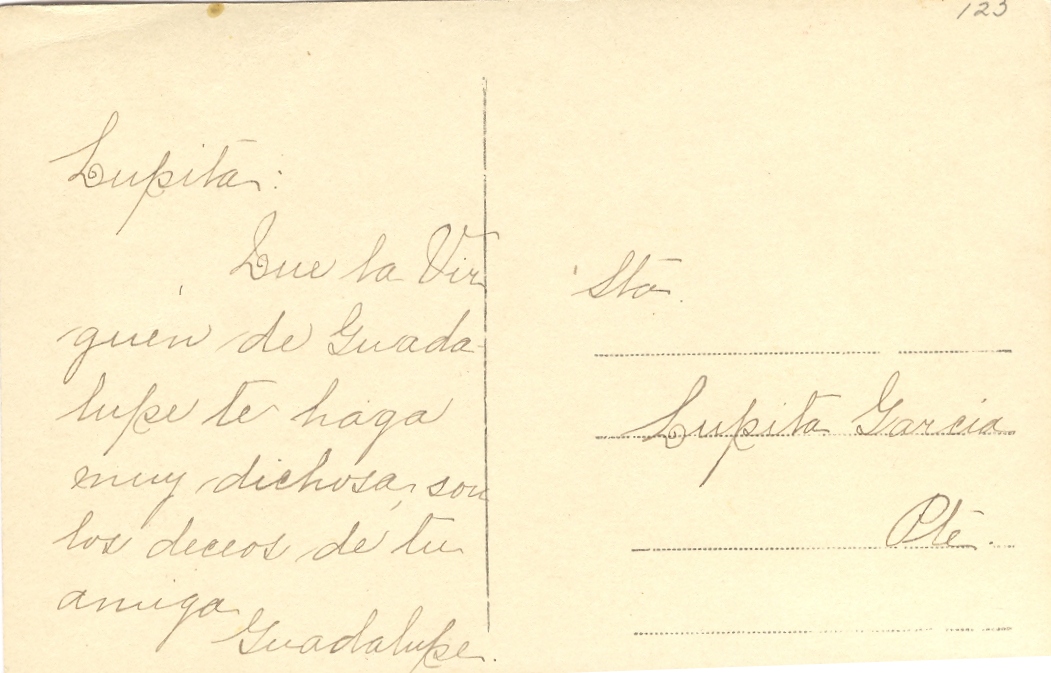 123
Lupita:
Que la Vir
guen de Guada-
lupe te haga
muy dichosa, son
los deceos de tu
amiga
Guadalupe.
Sta.
Lupita Garcia
Pte.